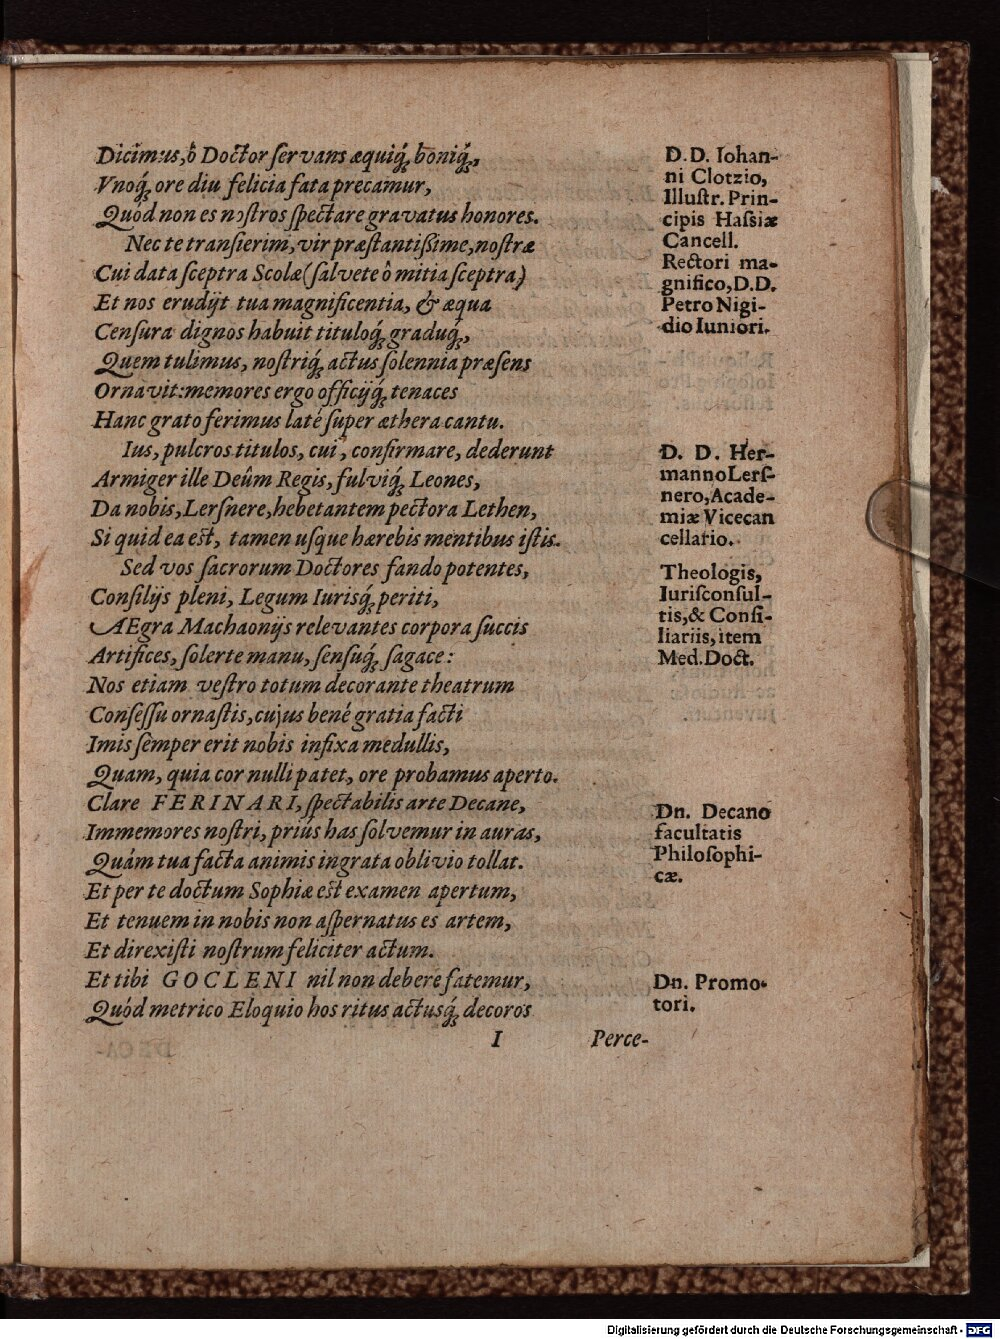 Dicimus, ô Doctor ſervans æquiq́;, boniq́;,
Vnoq́; ore diu felicia fata precamur,
Quòd non es noſtros ſpectare gravatus honores.
Nec te tranſierim, vir præſtantißime, noſtræ
Cui data ſceptra Scolæ (ſalvete ô mitia ſceptra)
Et nos erudijt tua magnificentia, & æqua
Cenſura dignos habuit tituloq́; graduq́;,
Quem tulimus, noſtriq́; actus ſolennia præſens
Ornavit: memores ergo officijq́; tenaces
Hanc grato ferimus laté ſuper æthera cantu.
Ius, pulcros titulos, cui, confirmare, dederunt
Armiger ille Deûm Regis, fulviq́; Leones,
Da nobis, Lerſnere, hebetantem pectora Lethen,
Si quid ea eſt, tamen uſque hærebis mentibus iſtis.
Sed vos ſacrorum Doctores fando potentes,
Conſilijs pleni, Legum Iurisq́; periti,
AEgra Machaonijs relevantes corpora ſuccis
Artifices, ſolerte manu, ſenſuq́; ſagace:
Nos etiam veſtro totum decorante theatrum
Conſeſſu ornaſtis, cujus bené gratia facti
Imis ſemper erit nobis infixa medullis,
Quam, quia cor nulli patet, ore probamus aperto.
Clare FERINARI, ſpectabilis arte Decane,
Immemores noſtri, prius has ſolvemur in auras,
Quám tua facta animis ingrata oblivio tollat.
Et per te doctum Sophiæ eſt examen apertum,
Et tenuem in nobis non aſpernatus es artem,
Et direxiſti noſtrum feliciter actum.
Et tibi GOCLENI nil non debere fatemur,
Quód metrico Eloquio hos ritus actusq́; decoros
I
Perce-
D.D. Iohan-
ni Clotzio,
Illuſtr. Prin-
cipis Haſsiæ
Cancell.
Rectori ma-
gnifico, D.D.
Petro Nigi-
dio Iuniori.
D. D. Her-
manno Lerſ-
nero, Acade-
miæ Vicecan
cellario.
Theologis,
Iuriſconſul-
tis, & Conſi-
liariis, item
Med. Doct.
Dn. Decano
facultatis
Philoſophi-
cæ.
Dn. Promo-
tori.
Digitalisierung gefördert durch die Deutsche Forschungsgemeinschaft - DFG